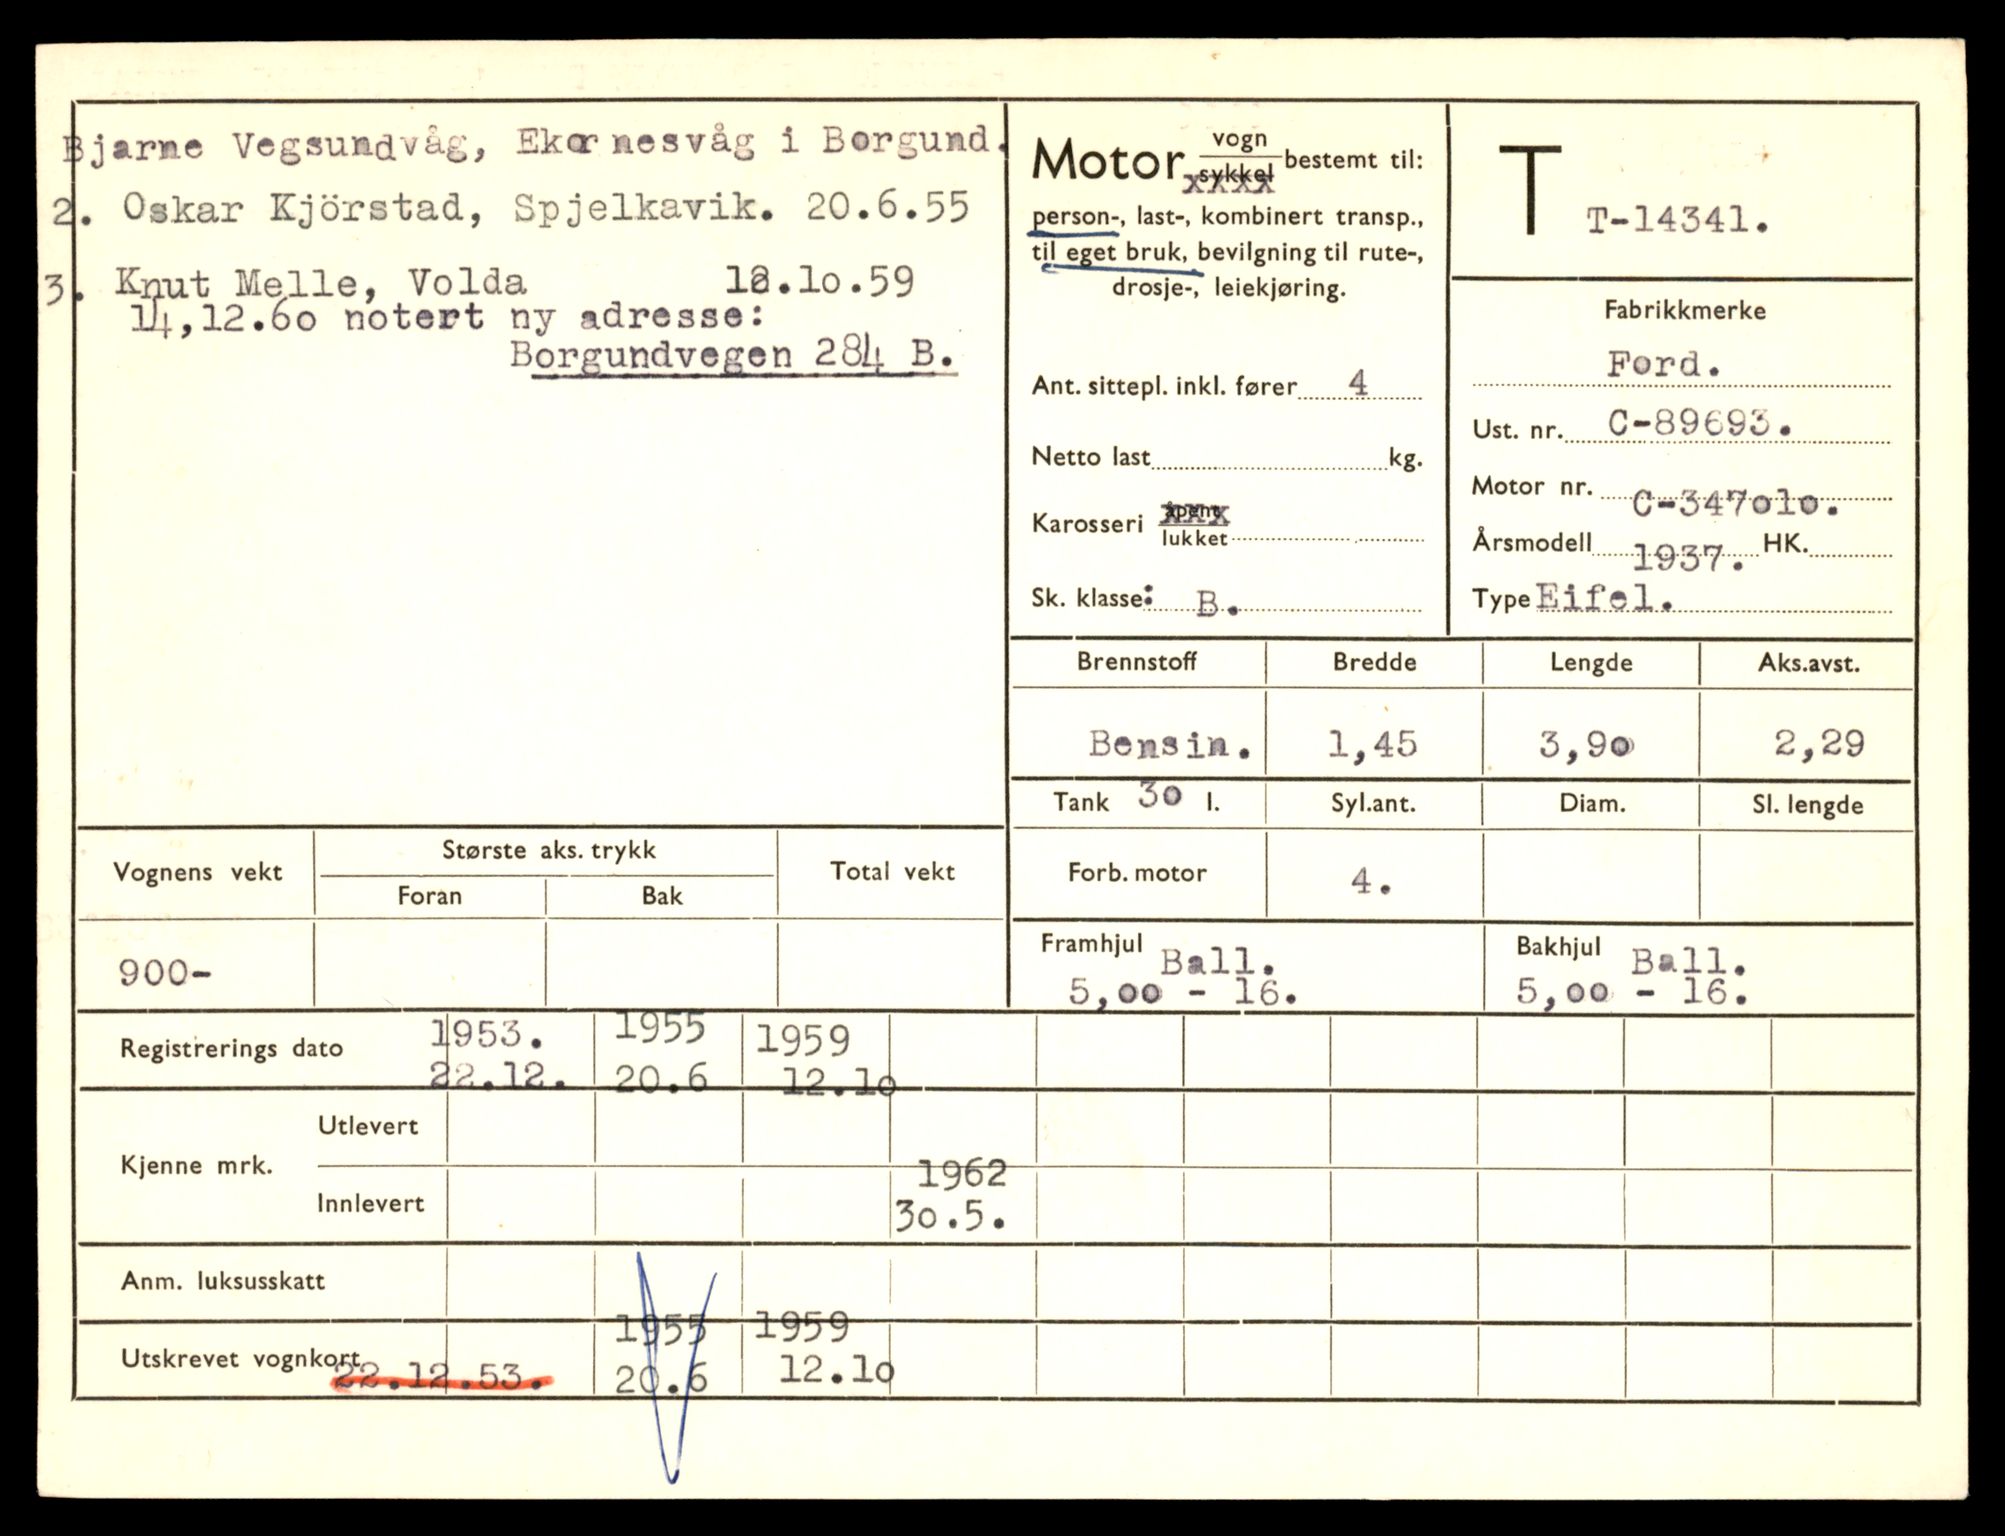 Bjarne Vegsundvåg, Ekornesvåg i Borgund.
2. Oskar Kjörstad, Spjelkavik. 20.6.55
3. Knut Melle, Volda 12.10.59
14,12.60 notert ny adresse:
Borgundvegen 284 B.
Motor vogn
sykkel bestemt til:
xxxx
person-, last-, kombinert transp.,
til eget bruk, bevilgning til rute-,
drosje-, leiekjøring.
Ant. sittepl. inkl. fører 4
Netto last kg.
Karosseri åpent xxx
lukket
Sk. klasse: B.
T T-14341.
Fabrikkmerke
Ford.
Ust. nr. C-89693.
Motor nr. C-347010.
Årsmodell 1937. HK.
Type Eifel.
Brennstoff Bredde Lengde Aks.avst.
Bensin. 1,45 3,90 2,29
Tank 30 l. Syl.ant. Diam. Sl. lengde
Forb. motor 4.
Framhjul Ball.
5,00 - 16.
Bakhjul Ball.
5,00 - 16.
Vognens vekt Største aks. trykk Total vekt
Foran Bak
900-
Registrerings dato 1953. 1955 1959
22.12. 20.6 12.10
Kjenne mrk. Utlevert
Innlevert 1962
30.5.
Anm. luksusskatt
Utskrevet vognkort 22.12.53. 1955 1959
20.6 12.10